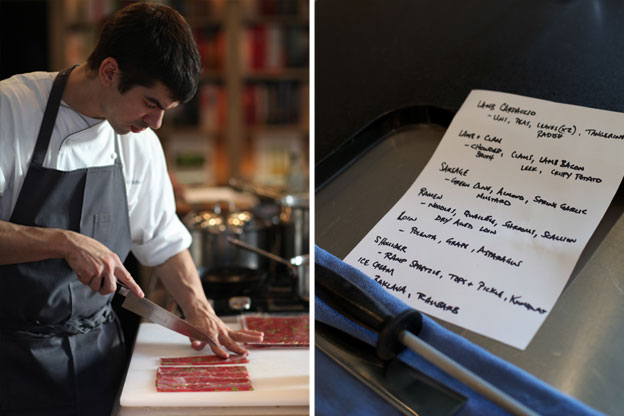 LAMB CARPACCIO
- UNI, PEAS, LEAVES (X2), TANGERINE
RADISH
LAMB + CLAM
- CHOWDER, CLAMS, LAMB BACON
BROTH LEEK, CRISPY POTATO
SAUSAGE
- GREEN OLIVE, ALMOND, SPRING GARLIC
MUSTARD
RAMEN
- NOODLES, QUAIL EGG, SCALLION
LOIN DRY AGED LOIN
- POLENTA, GRAPE, ASPARAGUS
SHOULDER
- RAMP SPAETZLE, PICKLE, KUMQUAT
ICE CREAM
RHUBARB